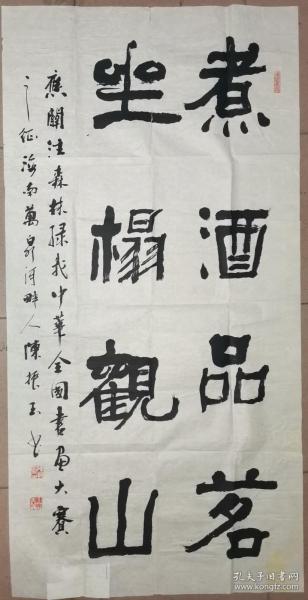 煮酒品茗
坐榻觀山
應關注森林緑我中華全國書畫大賽
之征海南萬泉河畔人陳振玉书
孔夫子旧书网